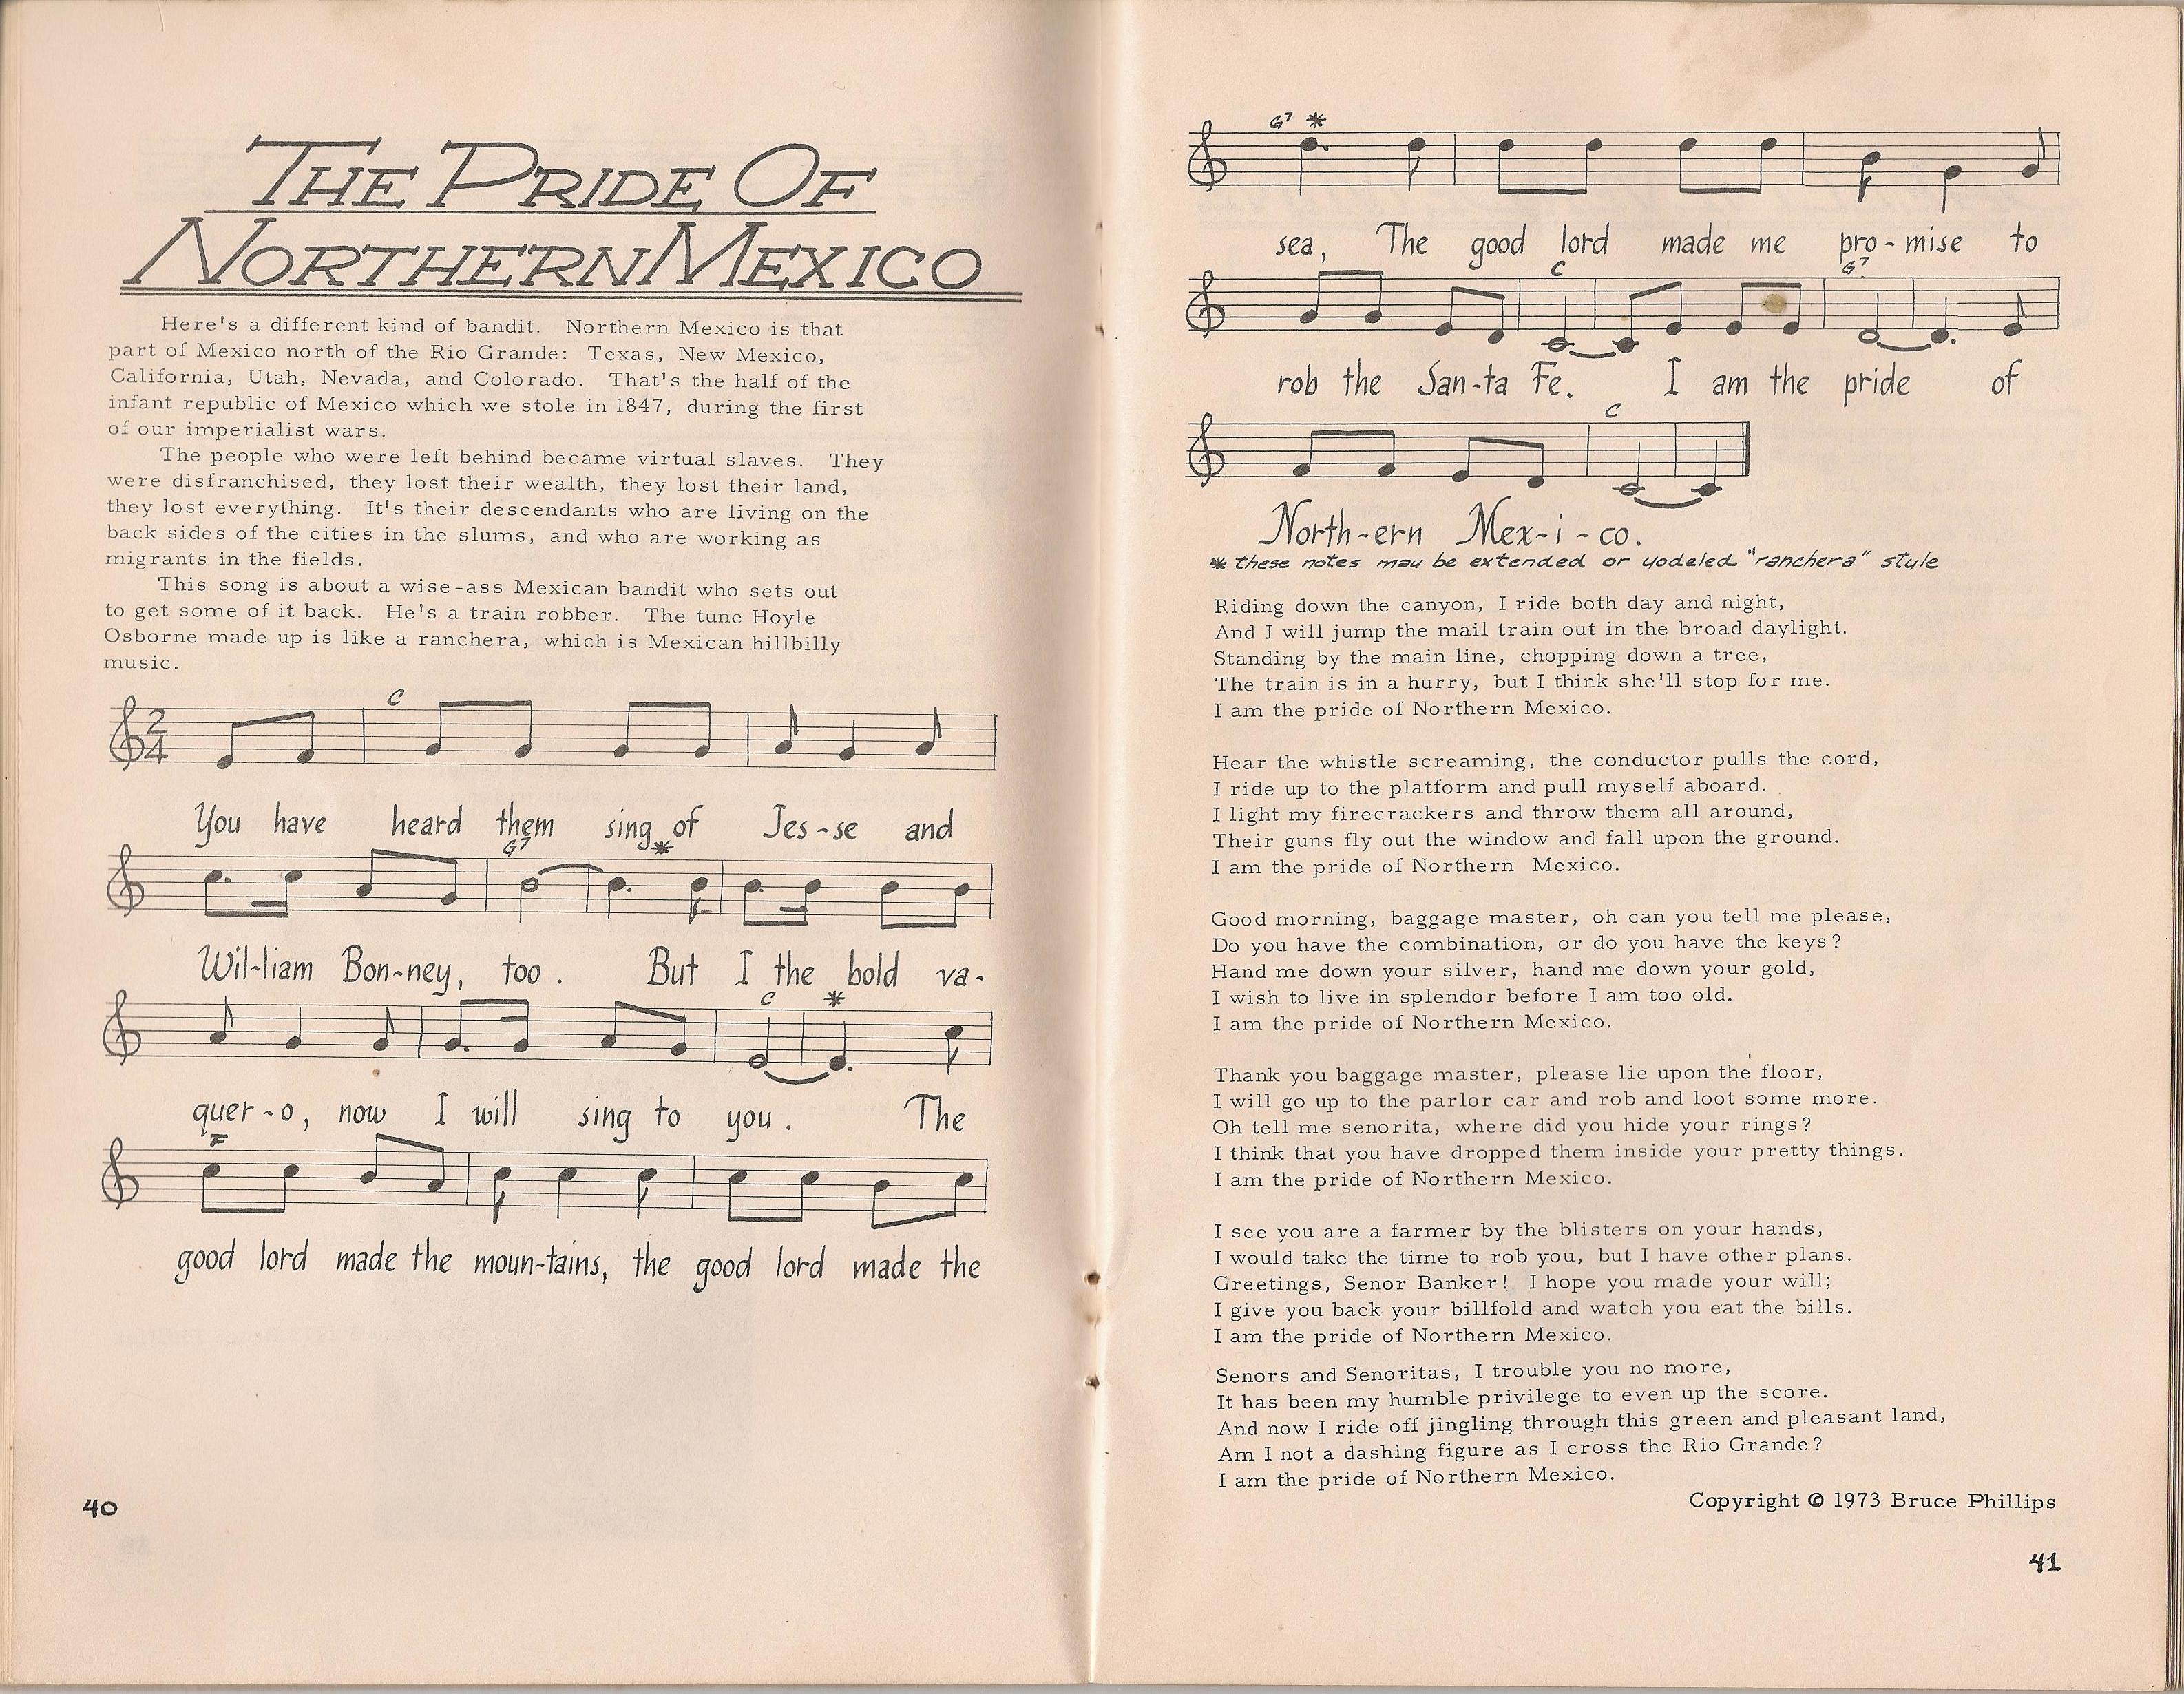 THE PRIDE OF
NORTHERN MEXICO
Here's a different kind of bandit. Northern Mexico is that
part of Mexico north of the Rio Grande: Texas, New Mexico,
California, Utah, Nevada, and Colorado. That's the half of the
infant republic of Mexico which we stole in 1847, during the first
of our imperialist wars.
The people who were left behind became virtual slaves. They
were disfranchised, they lost their wealth, they lost their land,
they lost everything. It's their descendants who are living on the
back sides of the cities in the slums, and who are working as
migrants in the fields.
This song is about a wise-ass Mexican bandit who sets out
to get some of it back. He's a train robber. The tune Hoyle
Osborne made up is like a ranchera, which is Mexican hillbilly
music.
C
2
4
You have heard them sing of Jes-se and
G7 *
Wil-liam Bon-ney, too. But I the bold va-
C *
quer-o, now I will sing to you. The
F
good lord made the moun-tains, the good lord made the
40
G7 *
sea, The good lord made me pro-mise to
C G7
rob the San-ta Fe. I am the pride of
C
North-ern Mex-i-co.
* these notes may be extended or yodeled "ranchera" style
Riding down the canyon, I ride both day and night,
And I will jump the mail train out in the broad daylight.
Standing by the main line, chopping down a tree,
The train is in a hurry, but I think she'll stop for me.
I am the pride of Northern Mexico.
Hear the whistle screaming, the conductor pulls the cord,
I ride up to the platform and pull myself aboard.
I light my firecrackers and throw them all around,
Their guns fly out the window and fall upon the ground.
I am the pride of Northern Mexico.
Good morning, baggage master, oh can you tell me please,
Do you have the combination, or do you have the keys?
Hand me down your silver, hand me down your gold,
I wish to live in splendor before I am too old.
I am the pride of Northern Mexico.
Thank you baggage master, please lie upon the floor,
I will go up to the parlor car and rob and loot some more.
Oh tell me senorita, where did you hide your rings?
I think that you have dropped them inside your pretty things.
I am the pride of Northern Mexico.
I see you are a farmer by the blisters on your hands,
I would take the time to rob you, but I have other plans.
Greetings, Senor Banker! I hope you made your will;
I give you back your billfold and watch you eat the bills.
I am the pride of Northern Mexico.
Senors and Senoritas, I trouble you no more,
It has been my humble privilege to even up the score.
And now I ride off jingling through this green and pleasant land,
Am I not a dashing figure as I cross the Rio Grande?
I am the pride of Northern Mexico.
Copyright © 1973 Bruce Phillips
41